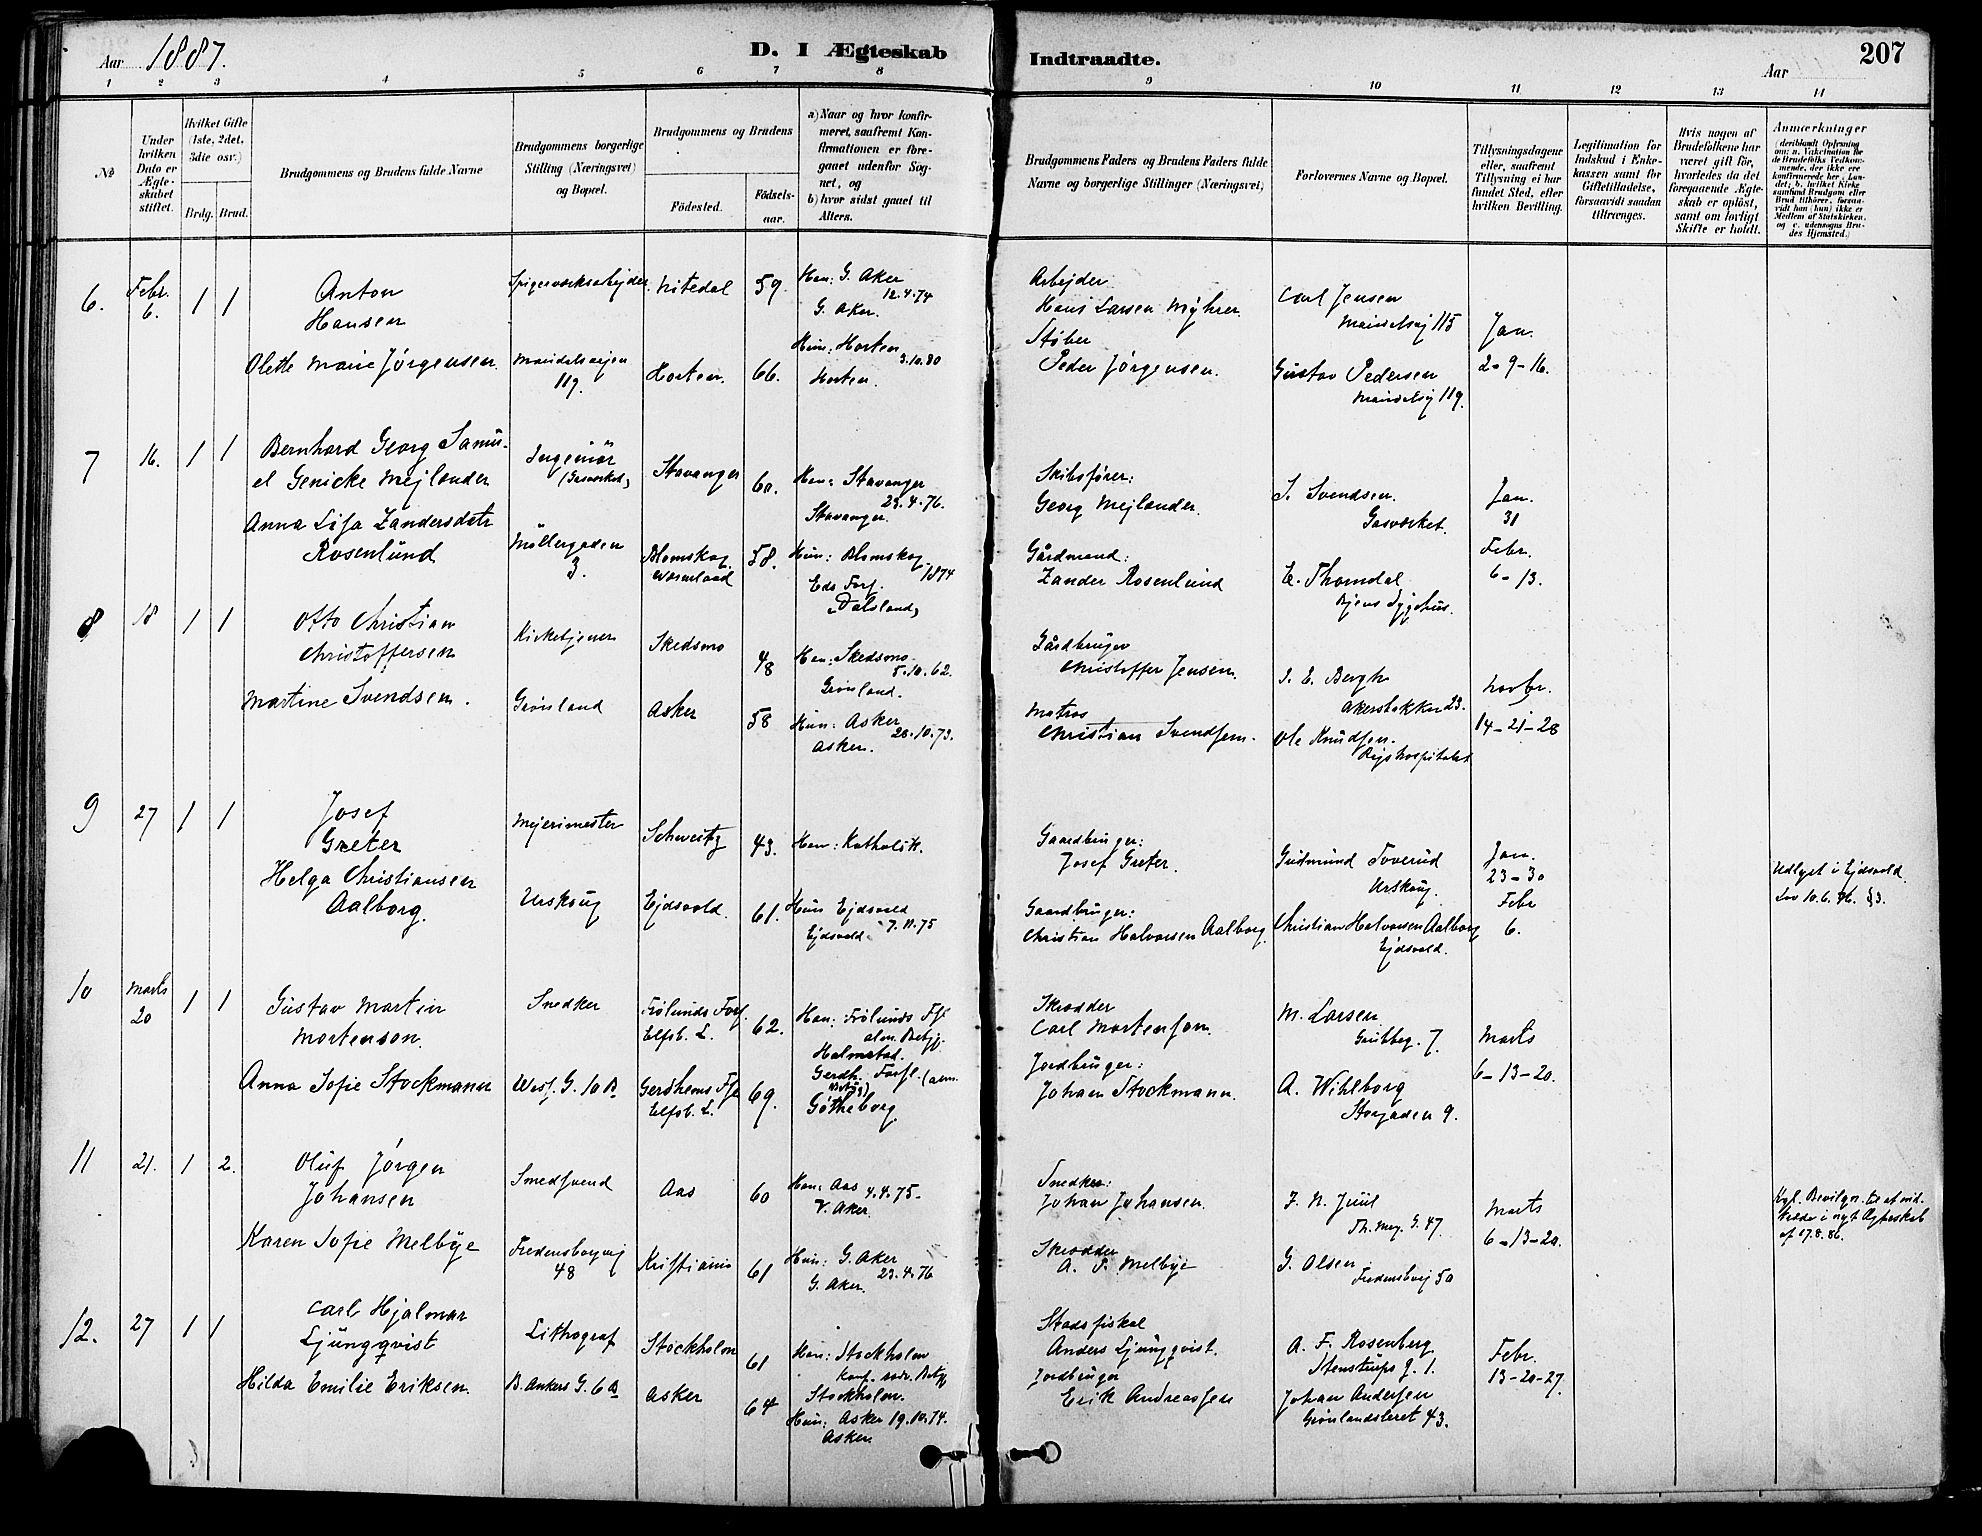 Aar 1887.
D. I Ægteskab
Indtraadte.
Aar
207
1 2 3 4 5 6 7 8 9 10 11 12 13 14
No
Under hvilken Dato er Ægteskabet stiftet.
Hvilket Gifte (1ste, 2det, 3die osv.)
Brdg. Brud.
Brudgommens og Brudens fulde Navne
Brudgommens borgerlige Stilling (Næringsvei) og Bopæl.
Brudgommens og Brudens
Födested.
Födselsaar.
a) Naar og hvor konfirmeret, saafremt Konfirmationen er foregaaet udenfor Sognet, og
b) hvor sidst gaaet til Alters.
Brudgommens Faders og Brudens Faders fulde Navne og borgerlige Stillinger (Næringsvei)
Forlovernes Navne og Bopæl.
Tillysningsdagene eller, saafremt Tillysning ei har fundet Sted, efter hvilken Bevilling.
Legitimation for Indskud i Enkekassen samt for Giftetilladelse, forsaavidt saadan tiltrænges.
Hvis nogen af Brudefolkene har været gift för, hvorledes da det foregaaende Ægteskab er oplöst, samt om lovligt Skifte er holdt.
Anmærkninger
(deriblandt Oplysning om: a. Vakcination for de Brudefolks Vedkommende, der ikke ere konfirmerede her i Landet; b. hvilket Kirkesamfund Brudgom eller Brud tilhörer, forsaavidt han (hun) ikke er Medlem af Statskirken, og c. udensogns Brudes Hjemsted.)
6. Febr. 6. 1 1
Anton
Hansen
Olette Marie Jörgensen.
Spigerværksarbejder
Maridalsvejen
119.
Nitedal 59.
Horten. 66.
Han: G. Aker
12.4.74
G. Aker.
Hun: Horten
3.10.80
Horten.
Arbejder
Hans Larsen Myhrer.
Støber
Peder Jörgensen.
Carl Jensen
Maridalsvej 115
Gustav Pedersen
Maridalsvej 119.
Jan.
2-9-16.
7 16. 1 1
Bernhard Georg Samu-
el Genicke Mejlander
Anna Lisa Zandersdatr
Rosenlund
Ingeniör
(Gasværket)
Møllergaden
3.
Stavanger 60.
Blomskog.
Wermland 58.
Han: Stavanger
23.4.76.
Stavanger.
Hun: Blomskog
1874
Eds Fors.
(Dalsland)
Skibsfører:
Georg Mejlander.
Gårdmand:
Zander Rosenlund
S. Svendsen.
Gasværket.
E. Thomdal
Byens Sygehus.
Jan.
31
Febr.
6-13.
8 18 1 1
Otto Christian
Christoffersen
Martine Svendsen.
Kirketjener
Grønland
Skedsmo 48
Asker 58
Han: Skedsmo.
5.10.62.
Grønland.
Hun: Asker
26.10.73.
Asker.
Gårdbruger
Christoffer Jensen.
Matros
Christian Svendsen.
S. E. Bergh
Akersbakken 23.
Ole Knudsen.
Rigshospitalet
Novbr.
14-21-28
9 27 1 1
Josef
Greter
Helga Christiansen
Aalborg.
Mejerimester
Urskoug
Schweitz 43.
Ejdsvold. 61.
Han: Katholik.
Hun Ejdsvold
7.11.75
Ejdsvold
Gaardbruger:
Josef Greter.
Gaardbruger:
Christian Halvorsen Aalborg.
Gudmund Toverud
Urskoug.
Christian Halvorsen Aalborg
Ejdsvold.
Jan.
23-30
Febr
6.
Udlyst i Ejdsvold.
10 Marts 20 1 1
Gustav Martin
Mortenson.
Anna Sofie Stockmann
Snedker
West. G. 10 B
Frölunds Fors.
Elfsb. L. 62.
Gerdhems Fs.
Elfsb. L. 69.
Han: Frölunds Fs.
alm. Betyg.
Halmstad.
Gerdh. Fors. (alm.
Betyg)
Götheborg
Skrædder
Carl Mortenson.
Jordbruger:
Johan Stockmann.
M. Larsen
Grubbeg. 7.
A. Wihlborg
Storgaden 9.
Marts
6-13-20.
11 21. 1 2.
Oluf Jörgen
Johansen
Karen Sofie Melbye
Smedsvend
Fredensborgvej
48
Aas 60
Kristiania 61
Han: Aas 4.4.75-
V. Aker.
Hun: G. Aker
23.4.76
G. Aker.
Snedker:
Johan Johansen.
Skrædder
A. P. Melbye
J. N. Juul
Th. Mey. G. 47
G. Olsen
Fredensbvej 50
Marts
6-13-20.
Kgl. Bevilgn. til at ind-
træde i nyt Ægteskab
af 17.8.86.
12. 27 1 1
Carl Hjalmar
Ljungqvist
Hilda Emilie Eriksen.
Lithograf
B. Ankers G. 6 B
Stockholm 61
Asker 64
Han: Stockholm
Konf. Betyg
Stockholm.
Hun: Asker 19.10.74.
Asker.
Stadsfiskal
Anders Ljungqvist.
Jordbruger
Erik Andreassen
A. F. Rosenberg
Stenstrups g. 1.
Johan Andersen
Grønlandsleret 43.
Febr.
13-20-27.